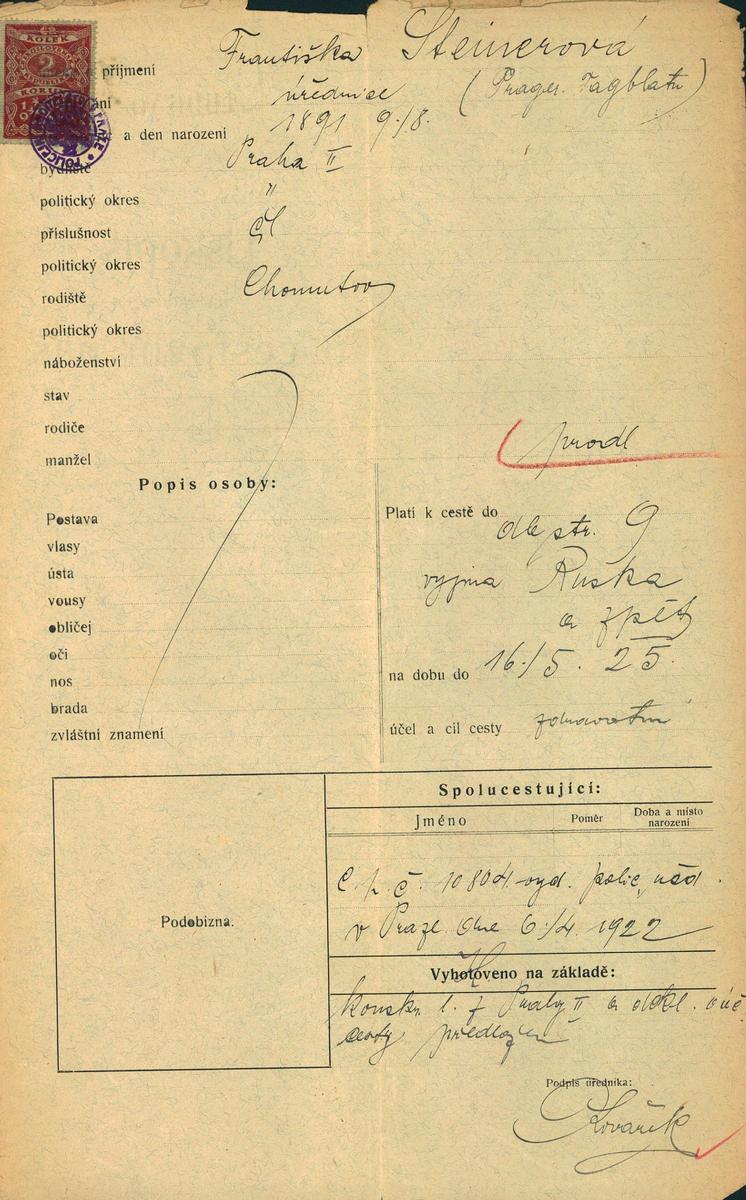 KOLEK
2
KORUNY
Františka Steinerová
příjmení
úřednice (Prager. Tagblatu)
a den narození 1891 9./8.
bydliště Praha II
politický okres "
příslušnost čsl
politický okres
rodiště Chomutov
politický okres
náboženství
stav
rodiče
manžel
prodl
Popis osoby:
Postava
vlasy
ústa
vousy
obličej
oči
nos
brada
zvláštní znamení
Platí k cestě do dle str. 9
vyjma Ruska
a zpět
na dobu do 16./5. 25.
účel a cíl cesty zdravotní
Podobizna.
Spolucestující:
Jméno Poměr Doba a místo narození
C. p. č. 10804 vyd. polic. řed.
v Praze dne 6./4. 1922
Vyhotoveno na základě:
konskr. l. z Prahy II a dokl. o úč.
cesty předlož
Podpis úředníka:
Kovařík